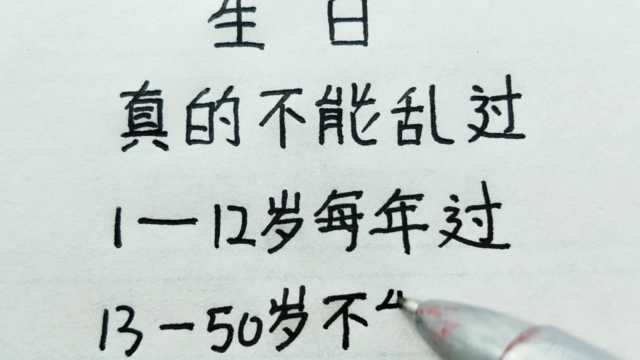 生日
真的不能乱过
1—12岁每年过
13—50岁不